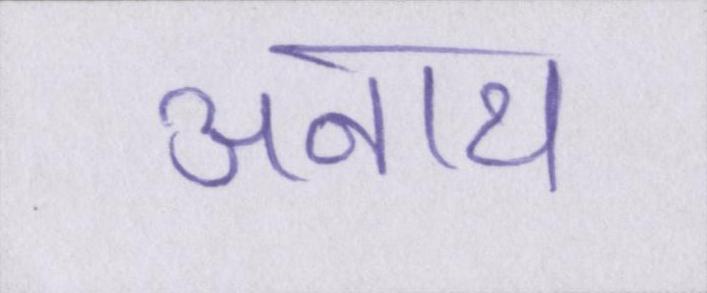 अनाथ